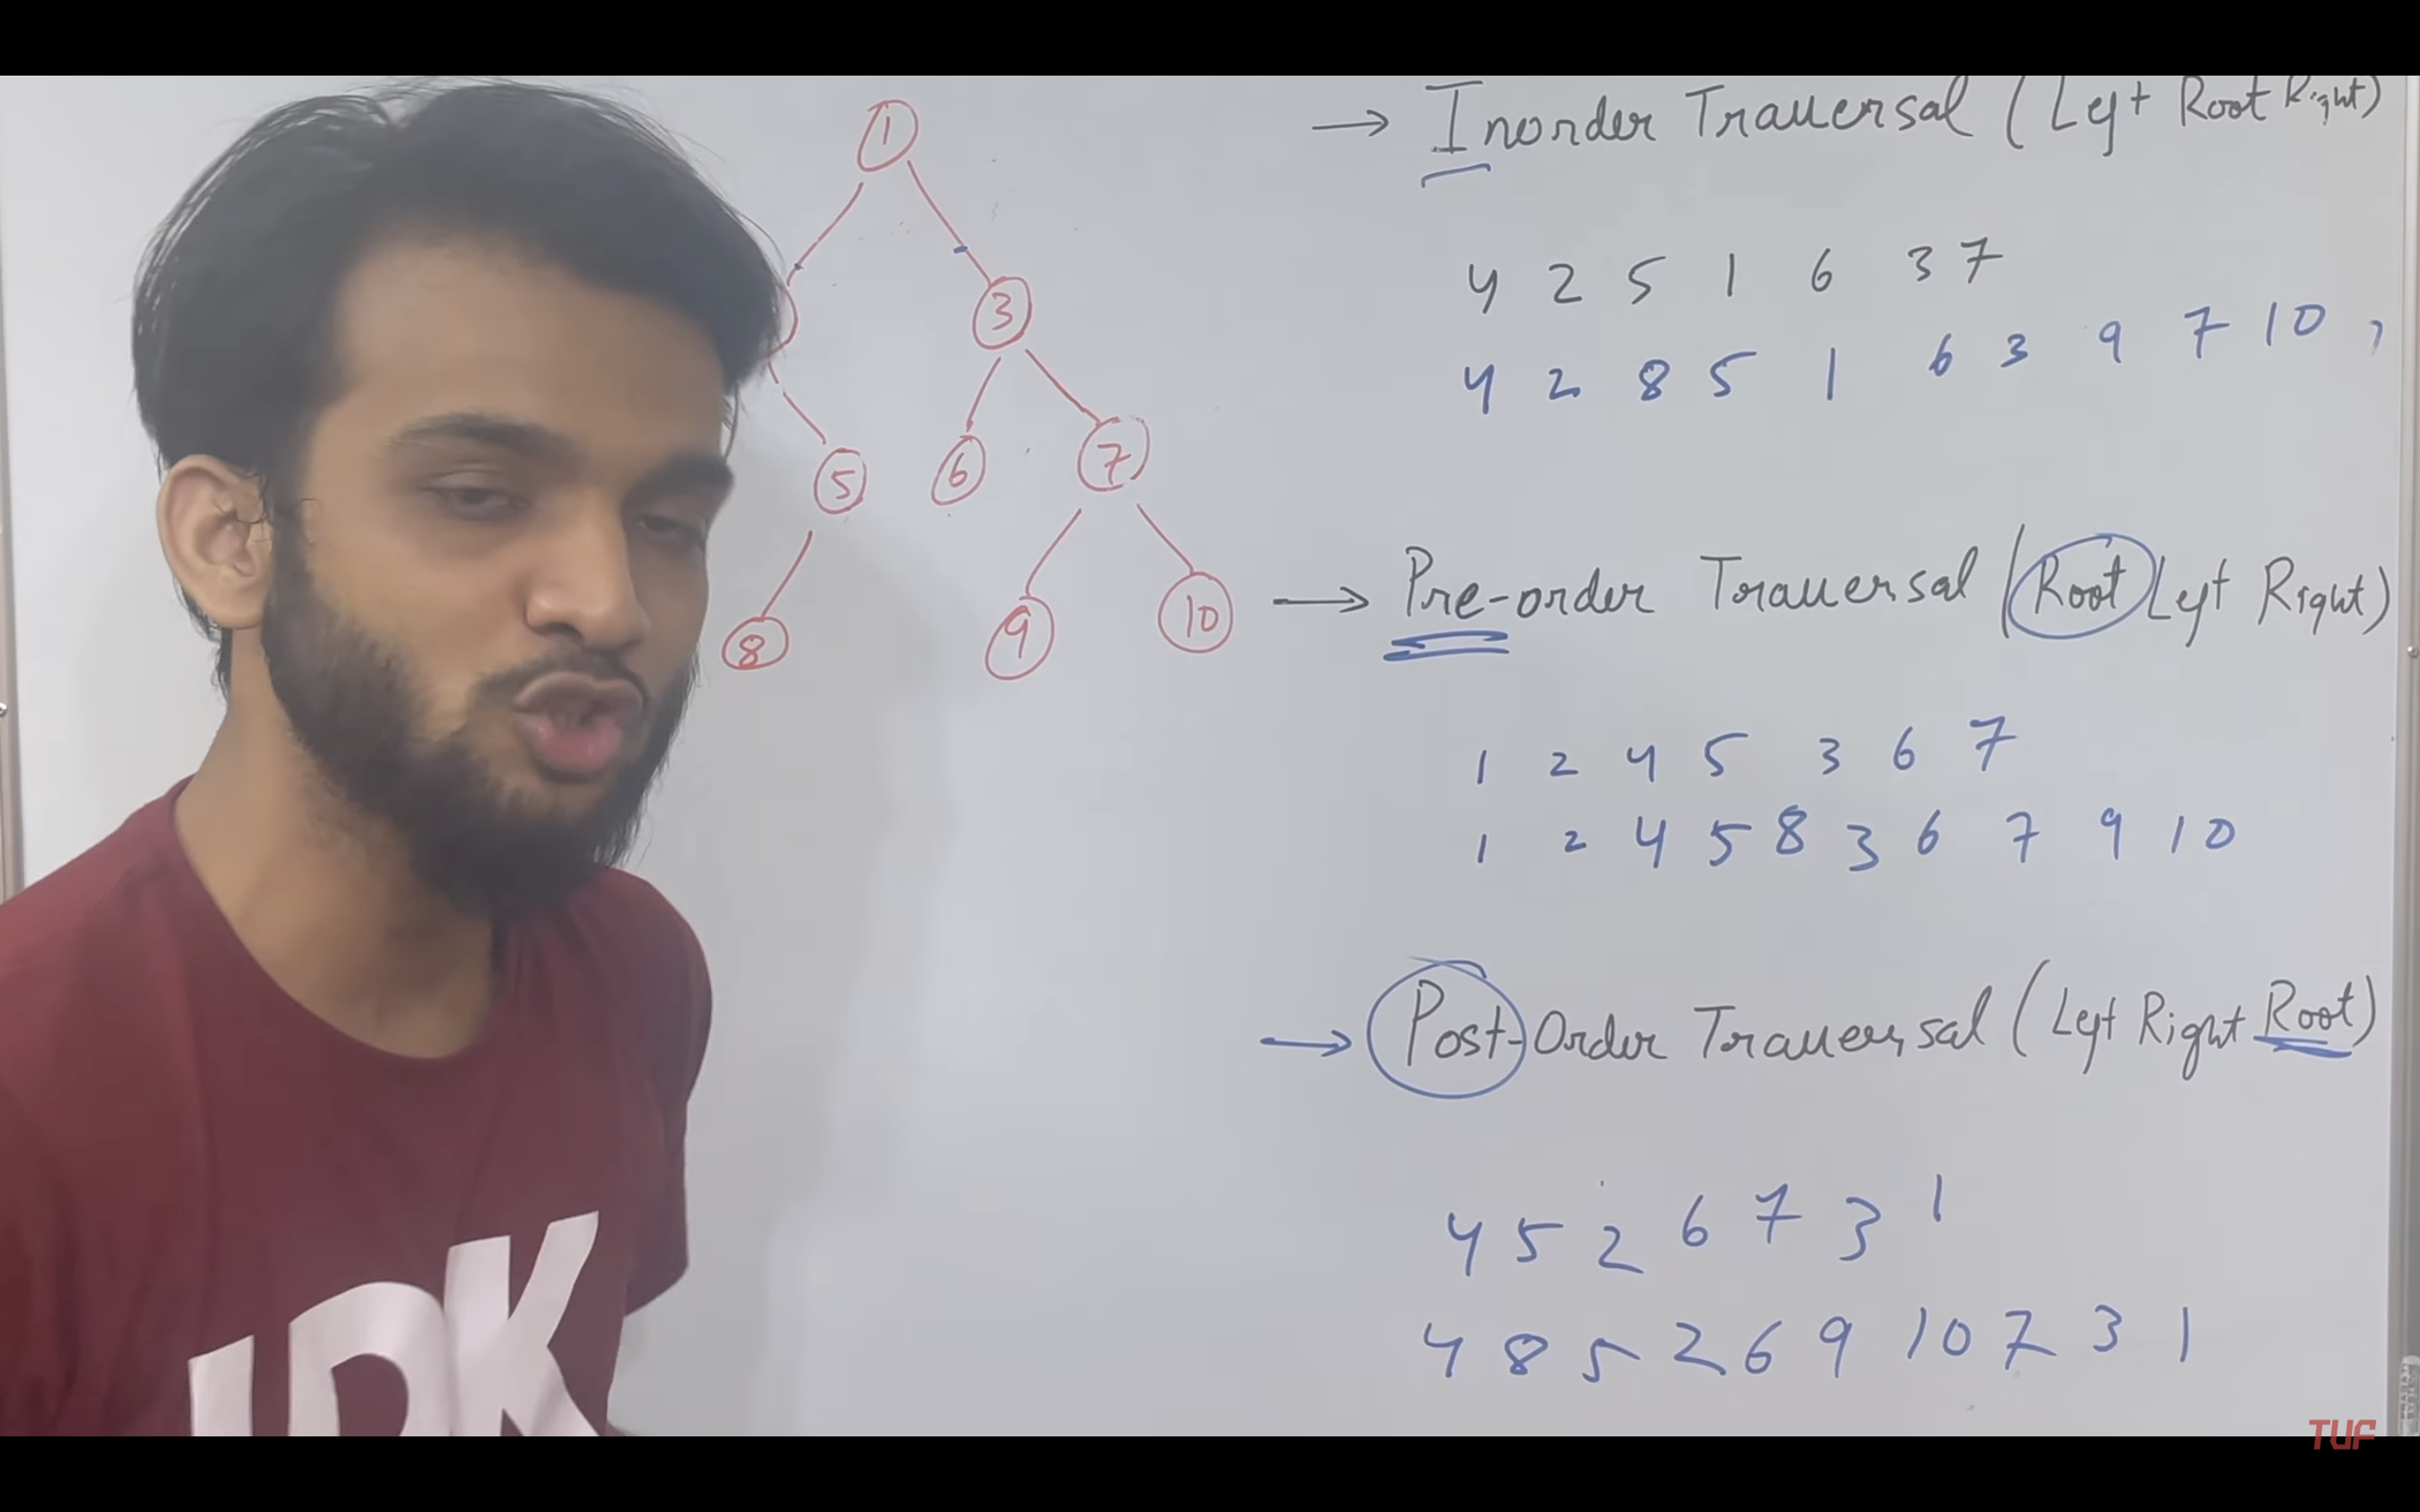 1
3
5 6 7
8 9 10
→ Inorder Traversal (Left Root Right)
4 2 5 1 6 3 7
4 2 8 5 1 6 3 9 7 10
→ Pre-order Traversal (Root Left Right)
1 2 4 5 3 6 7
1 2 4 5 8 3 6 7 9 10
→ Post-Order Traversal (Left Right Root)
4 5 2 6 7 3 1
4 8 5 2 6 9 10 7 3 1
TUF